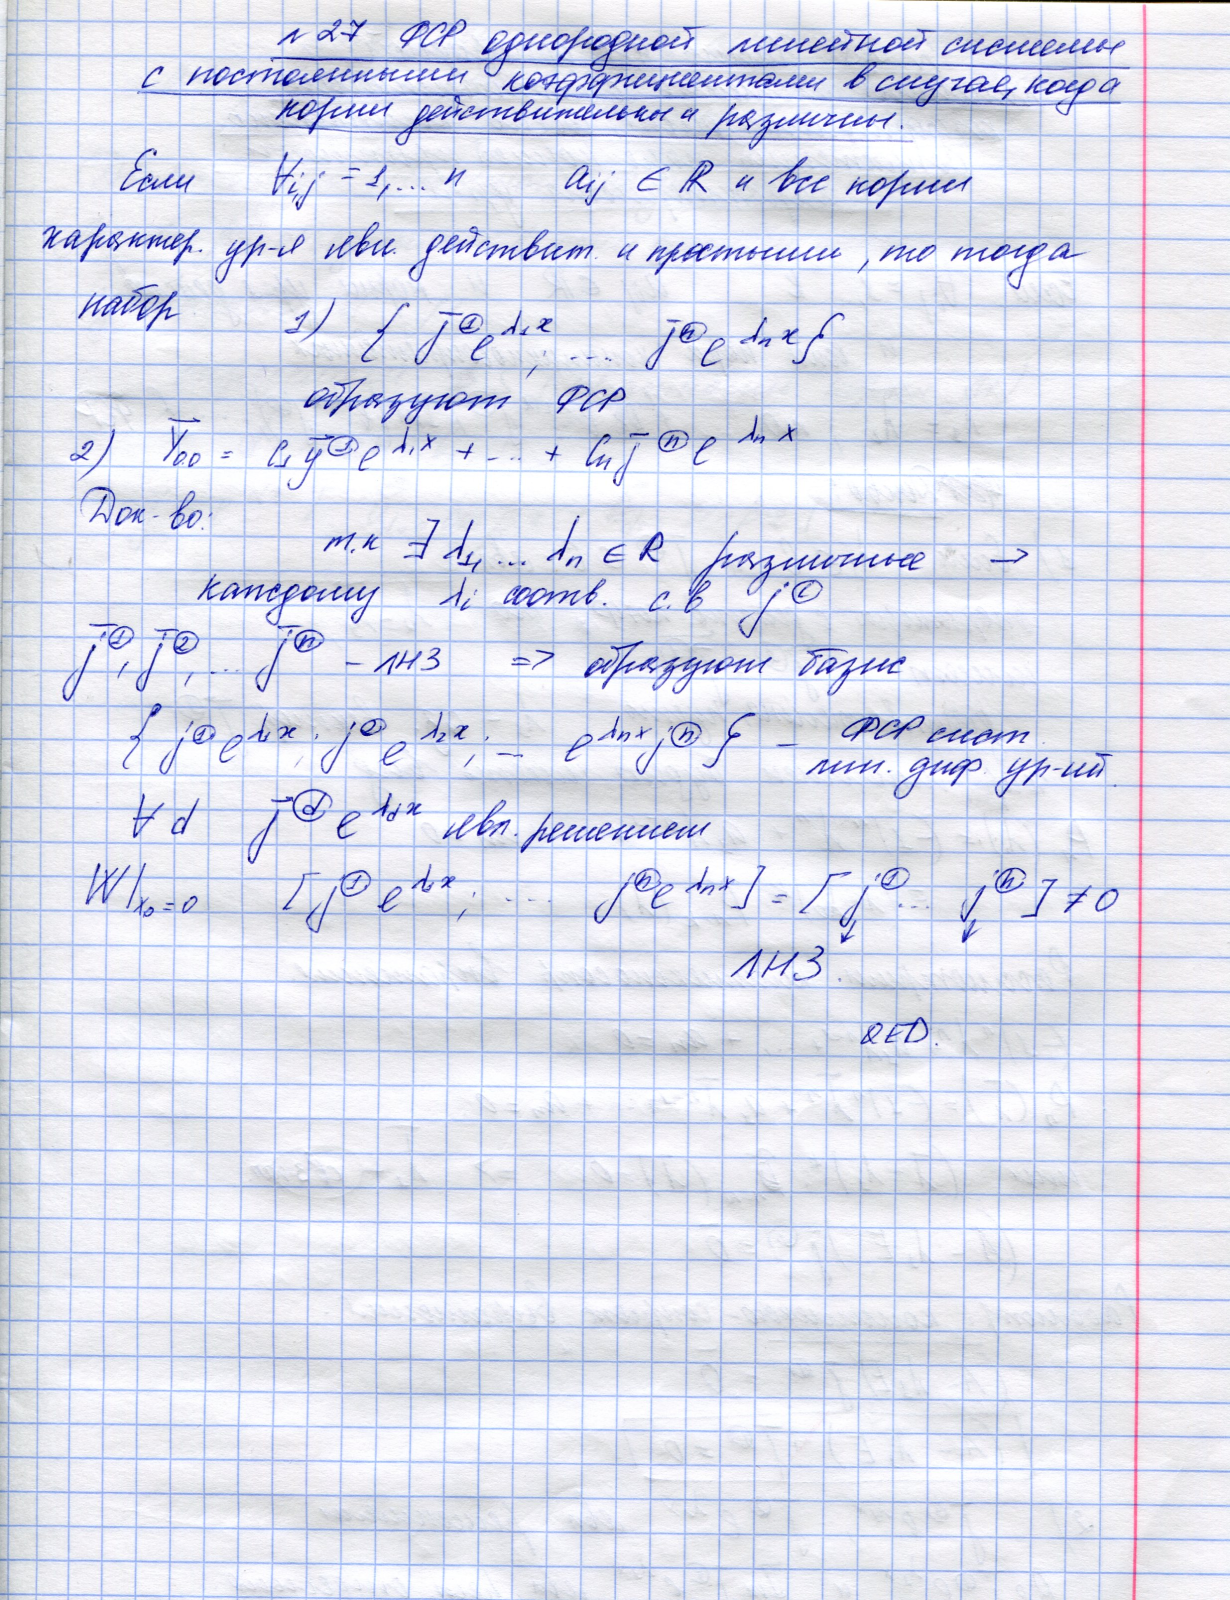 №27 ФСР однородной линейной системы
с постоянными коэффициентами в случае, когда
корни действительны и различны.
Если ∀i,j = 1,...n aij ∈ ℝ и все корни
характер. ур-я явл. действит. и простыми, то тогда
набор 1) { j̅^① e^{λ1x}; .... j̅^ⓝ e^{λnx} }
образуют ФСР
2) Y̅o.o = C1 j̅^① e^{λ1x} + ... + Cn j̅^ⓝ e^{λnx}
Док-во:
т.к ∃ λ1, ... λn ∈ R различные →
каждому λi соотв. с.в j^ⓘ
j̅^①, j̅^②, ... j̅^ⓝ – ЛНЗ => образуют базис
{ j^① e^{λ1x}; j^② e^{λ2x}; ... e^{λnx} j^ⓝ } – ФСР сист.
лин. диф. ур-ий.
∀ d j̅^ⓓ e^{λdx} явл. решением
W|x0=0 [ j^① e^{λ1x}; .... j^ⓝ e^{λnx} ] = [ j^① ... j^ⓝ ] ≠ 0
ЛНЗ.
QED.